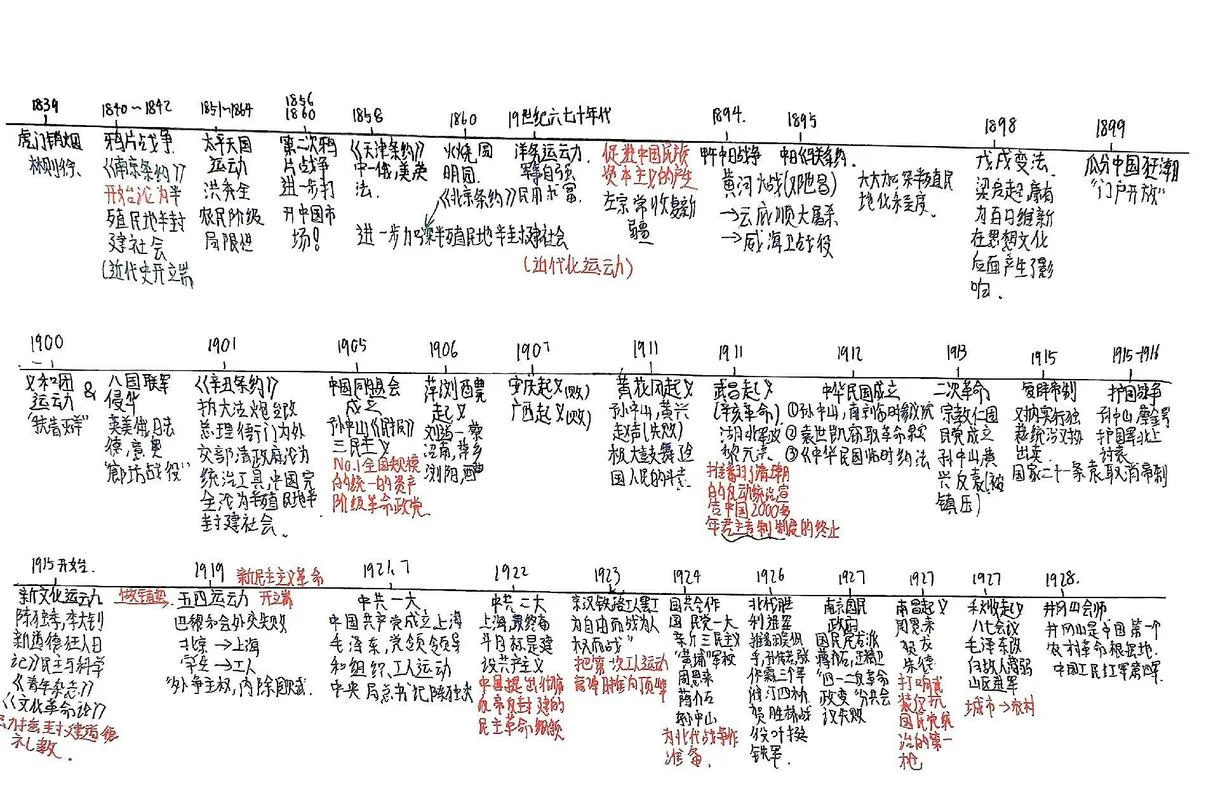 1839
1840～1842
1851~1864
1856
1860
1858
1860
19世纪六七十年代
1894.
1895
1898
1899
虎门销烟
林则徐.
鸦片战争.
《南京条约》
开始沦为半
殖民地半封
建社会
(近代史开端
太平天国
运动
洪秀全
农民阶级
局限性
第二次鸦
片战争
进一步打
开中国市
场!
《天津条约》
中-俄、美英
法.
火烧圆
明园.
《北京条约》
进一步加深半殖民地半封建社会
洋务运动.
军事自强
民用求富.
(近代化运动)
促进中国民族
资本主义的产生
左宗棠收复新
疆
甲午中日战争
黄河大战(邓世昌)
→云底顺大屠杀
→威海卫战役
中日《马关条约.
大大加深半殖民
地化程度.
戊戌变法.
梁启超、康有
为百日维新
在思想文化
方面产生了影
响.
瓜分中国狂潮
"门户开放"
1900
1901
1905
1906
1907
1911
1911
1912
1913
1915
1915-1916
义和团
运动
"扶清灭洋"
&
八国联军
侵华
英美俄日法
德,意奥
"廊坊战役"
《辛丑条约》
拆大沽炮台改
总理衙门为外
交部清政府沦为
统治工具,中国完
全沦为半殖民地半
封建社会.
中国同盟会
成立
孙中山《民报》
三民主义
No.1全国规模
的统一的资产
阶级革命政党.
萍浏醴
起义
刘道一蔡
绍南,萍乡
浏阳,醴
安庆起义(败)
广西起义(败)
黄花岗起义
孙中山,黄兴
赵声(失败)
极大鼓舞全
国人民的斗志.
武昌起义
(辛亥革命)
湖北军政
黎元洪
推翻了清朝
的反动统治宣
告中国2000多
年君主专制制度的终止
中华民国成立
①孙中山,南京临时参议院
②袁世凯窃取革命果实
③《中华民国临时约法
二次革命
宋教仁国
民党成立
孙中山黄
兴反袁(被
镇压)
复辟帝制
出卖.
国家二十一条
护国战争
孙中山,蔡锷
护国军北上
讨袁.
袁取消帝制
1915开始.
1919
新民主主义革命
开端
1921.7
1922
1923
1924
1926
1927
1927
1927
1928.
新文化运动
陈独秀,李大钊
新道德狂人日
记》民主与科学
《青年杂志》
《文化革命论》
封建道德
礼教.
做铺垫.
五四运动
巴黎和会外交失败
北京→上海
学生→工人
"外争主权,内除国贼.
中共一大
中国共产党成立上海
毛泽东,党领领导
和组织,工人运动
中央局总书记陈独秀
中共二大
上海,最终奋
斗目标是建
设共产主义
中国提出彻底
反帝反封建的
民主革命纲领
京汉铁路工人罢工
为自由而战为人
权而战"
把第一次工人运动
高峰推向顶峰
国共合作
国民党一大
新三民主义
"黄埔"军校
周恩来
蒋介石
孙中山
为北伐战争作
准备.
北伐胜
利进军
推翻吴佩
孚,孙传芳,张
作霖三个军
贺胜桥战
役叶挺
铁军.
南京国民
政府
国民党右派
蒋介石,汪精卫
"四一二反革命
政变"分共会
议失败
南昌起义
周恩来
贺龙
朱德
打响武
装反抗
国民党统
治的第一
枪.
秋收起义
八七会议
毛泽东改
向敌人薄弱
山区进军
城市→农村
井冈山会师
井冈山是中国第一个
农村革命根据地.
中国工农红军第四军.